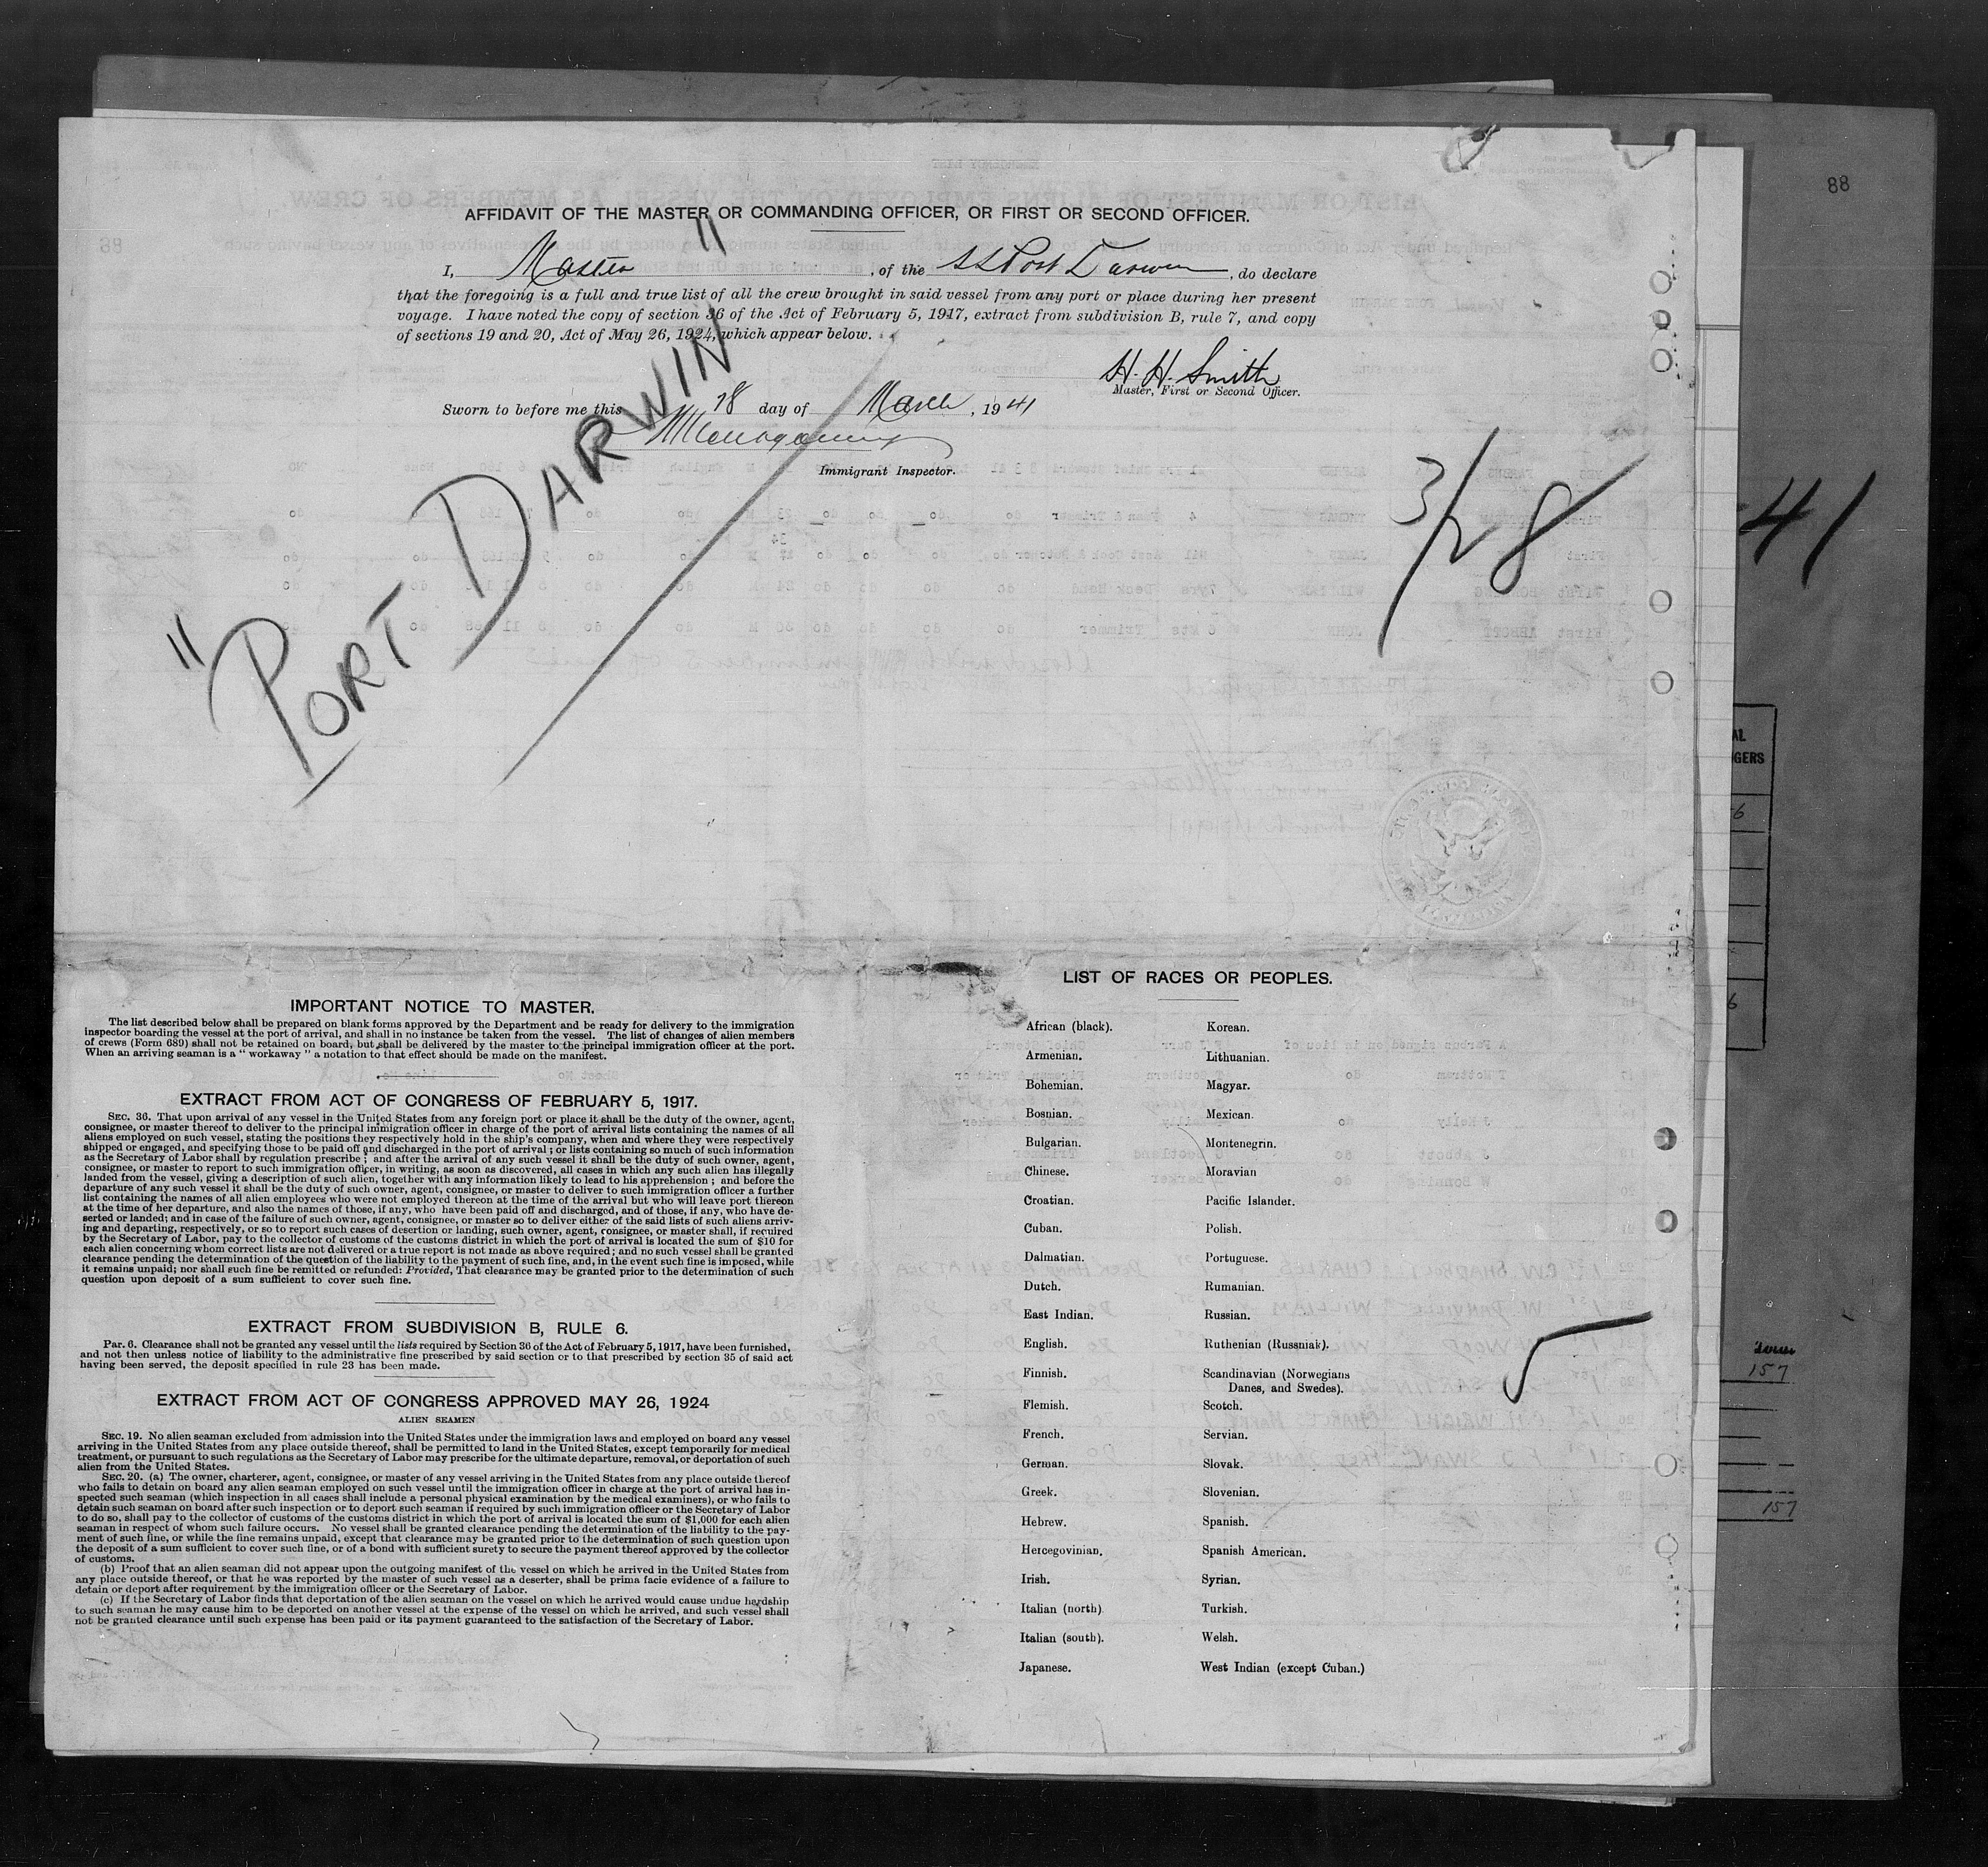 88
AFFIDAVIT OF THE MASTER OR COMMANDING OFFICER, OR FIRST OR SECOND OFFICER.
I, Master, of the SS Port Darwin, do declare
that the foregoing is a full and true list of all the crew brought in said vessel from any port or place during her present
voyage. I have noted the copy of section 36 of the Act of February 5, 1917, extract from subdivision B, rule 7, and copy
of sections 19 and 20, Act of May 26, 1924, which appear below.
H. H. Smith
Master, First or Second Officer.
Sworn to before me this 28 day of March, 1941
Immigrant Inspector.
"PORT DARWIN"
3/28
41
IMPORTANT NOTICE TO MASTER.
The list described below shall be prepared on blank forms approved by the Department and be ready for delivery to the immigration
inspector boarding the vessel at the port of arrival, and shall in no instance be taken from the vessel. The list of changes of alien members
of crews (Form 689) shall not be retained on board, but shall be delivered by the master to the principal immigration officer at the port.
When an arriving seaman is a "workaway" a notation to that effect should be made on the manifest.
EXTRACT FROM ACT OF CONGRESS OF FEBRUARY 5, 1917.
SEC. 36. That upon arrival of any vessel in the United States from any foreign port or place it shall be the duty of the owner, agent,
consignee, or master thereof to deliver to the principal immigration officer in charge of the port of arrival lists containing the names of all
aliens employed on such vessel, stating the positions they respectively hold in the ship's company, when and where they were respectively
shipped or engaged, and specifying those to be paid off and discharged in the port of arrival; or lists containing so much of such information
as the Secretary of Labor shall by regulation prescribe; and after the arrival of any such vessel it shall be the duty of such owner, agent,
consignee, or master to report to such immigration officer, in writing, as soon as discovered, all cases in which any such alien has illegally
landed from the vessel, giving a description of such alien, together with any information likely to lead to his apprehension; and before the
departure of any such vessel it shall be the duty of such owner, agent, consignee, or master to deliver to such immigration officer a further
list containing the names of all alien employees who were not employed thereon at the time of the arrival but who will leave port thereon
at the time of her departure, and also the names of those, if any, who have been paid off and discharged, and of those, if any, who have de-
serted or landed; and in case of the failure of such owner, agent, consignee, or master so to deliver either of the said lists of such aliens arriv-
ing and departing, respectively, or so to report such cases of desertion or landing, such owner, agent, consignee, or master shall, if required
by the Secretary of Labor, pay to the collector of customs of the customs district in which the port of arrival is located the sum of $10 for
each alien concerning whom correct lists are not delivered or a true report is not made as above required; and no such vessel shall be granted
clearance pending the determination of the question of the liability to the payment of such fine, and, in the event such fine is imposed, while
it remains unpaid; nor shall such fine be remitted or refunded: Provided, That clearance may be granted prior to the determination of such
question upon deposit of a sum sufficient to cover such fine.
EXTRACT FROM SUBDIVISION B, RULE 6.
Par. 6. Clearance shall not be granted any vessel until the lists required by Section 36 of the Act of February 5, 1917, have been furnished,
and not then unless notice of liability to the administrative fine prescribed by said section or to that prescribed by section 35 of said act
having been served, the deposit specified in rule 23 has been made.
EXTRACT FROM ACT OF CONGRESS APPROVED MAY 26, 1924
ALIEN SEAMEN
SEC. 19. No alien seaman excluded from admission into the United States under the immigration laws and employed on board any vessel
arriving in the United States from any place outside thereof, shall be permitted to land in the United States, except temporarily for medical
treatment, or pursuant to such regulations as the Secretary of Labor may prescribe for the ultimate departure, removal, or deportation of such
alien from the United States.
SEC. 20. (a) The owner, charterer, agent, consignee, or master of any vessel arriving in the United States from any place outside thereof
who fails to detain on board any alien seaman employed on such vessel until the immigration officer in charge at the port of arrival has in-
spected such seaman (which inspection in all cases shall include a personal physical examination by the medical examiners), or who fails to
detain such seaman on board after such inspection or to deport such seaman if required by such immigration officer or the Secretary of Labor
to do so, shall pay to the collector of customs of the customs district in which the port of arrival is located the sum of $1,000 for each alien
seaman in respect of whom such failure occurs. No vessel shall be granted clearance pending the determination of the liability to the pay-
ment of such fine, or while the fine remains unpaid, except that clearance may be granted prior to the determination of such question upon
the deposit of a sum sufficient to cover such fine, or of a bond with sufficient surety to secure the payment thereof approved by the collector
of customs.
(b) Proof that an alien seaman did not appear upon the outgoing manifest of the vessel on which he arrived in the United States from
any place outside thereof, or that he was reported by the master of such vessel as a deserter, shall be prima facie evidence of a failure to
detain or deport after requirement by the immigration officer or the Secretary of Labor.
(c) If the Secretary of Labor finds that deportation of the alien seaman on the vessel on which he arrived would cause undue hardship
to such seaman he may cause him to be deported on another vessel at the expense of the vessel on which he arrived, and such vessel shall
not be granted clearance until such expense has been paid or its payment guaranteed to the satisfaction of the Secretary of Labor.
LIST OF RACES OR PEOPLES.
African (black). Korean.
Armenian. Lithuanian.
Bohemian. Magyar.
Bosnian. Mexican.
Bulgarian. Montenegrin.
Chinese. Moravian
Croatian. Pacific Islander.
Cuban. Polish.
Dalmatian. Portuguese.
Dutch. Rumanian.
East Indian. Russian.
English. Ruthenian (Russniak).
Finnish. Scandinavian (Norwegians
Danes, and Swedes).
Flemish. Scotch.
French. Servian.
German. Slovak.
Greek. Slovenian.
Hebrew. Spanish.
Hercegovinian. Spanish American.
Irish. Syrian.
Italian (north) Turkish.
Italian (south). Welsh.
Japanese. West Indian (except Cuban.)
157
157